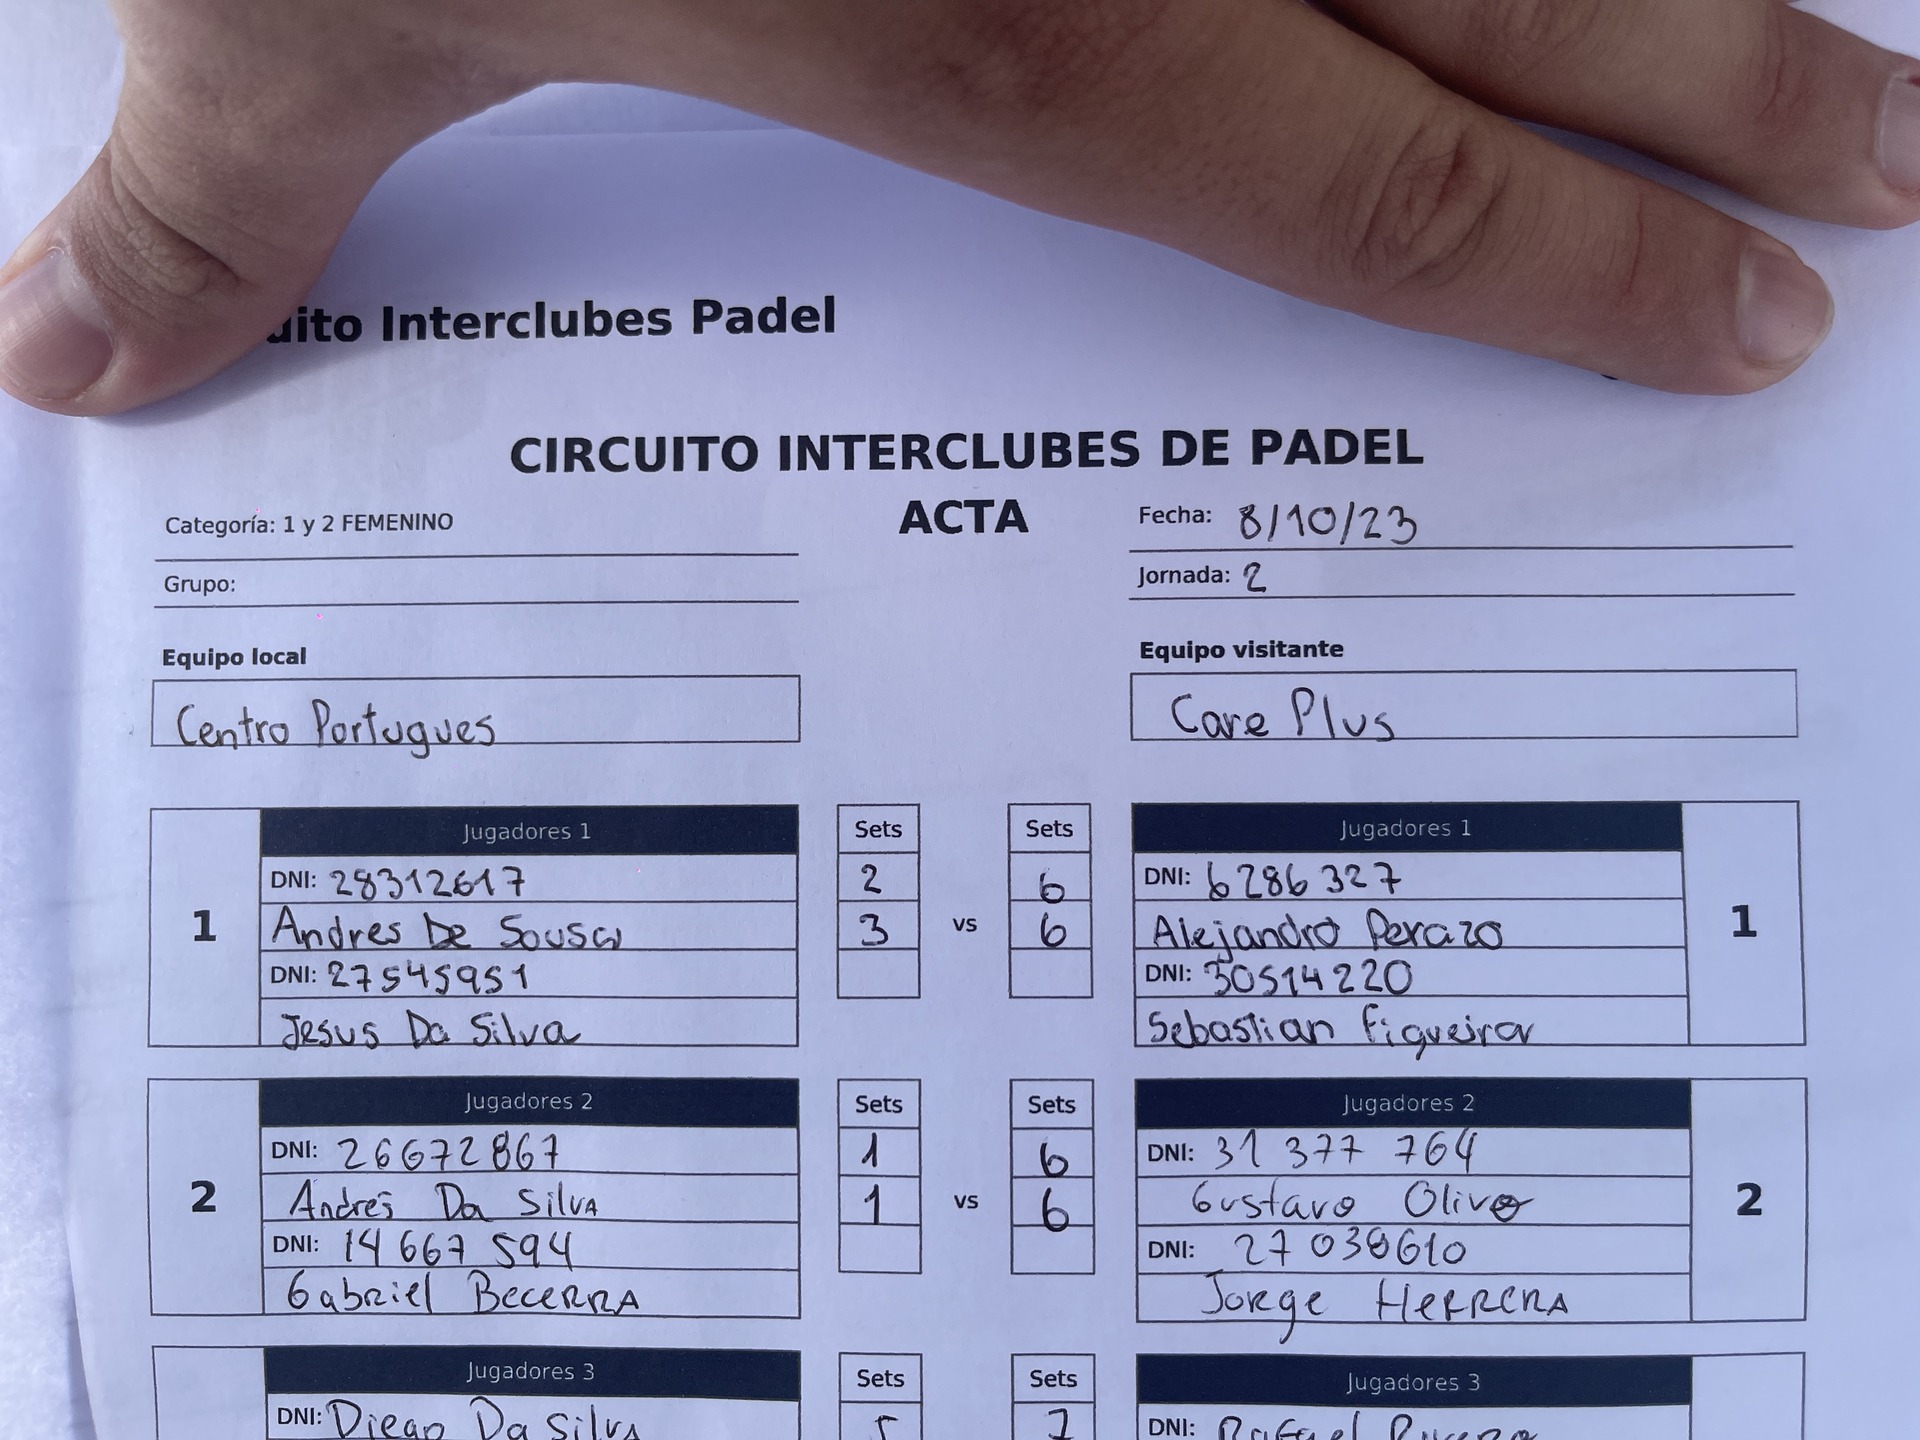 uito Interclubes Padel
CIRCUITO INTERCLUBES DE PADEL
ACTA
Categoría: 1 y 2 FEMENINO
Fecha: 8/10/23
Grupo:
Jornada: 2
Equipo local
Equipo visitante
Centro Portugues
Care Plus
Jugadores 1 Sets Sets Jugadores 1
DNI: 28312617 2 6 DNI: 6286327
1 Andres De Sousa 3 vs 6 Alejandro Perazo 1
DNI: 27545951 DNI: 30514220
Jesus Da Silva Sebastian Figueira
Jugadores 2 Sets Sets Jugadores 2
DNI: 26672867 1 6 DNI: 31 377 764
2 Andres Da Silva 1 vs 6 Gustavo Olivo 2
DNI: 14 667 594 DNI: 27 038610
Gabriel BECERRA Jorge HERRERA
Jugadores 3 Sets Sets Jugadores 3
DNI: Diego Da Silva 5 7 DNI: Rafael